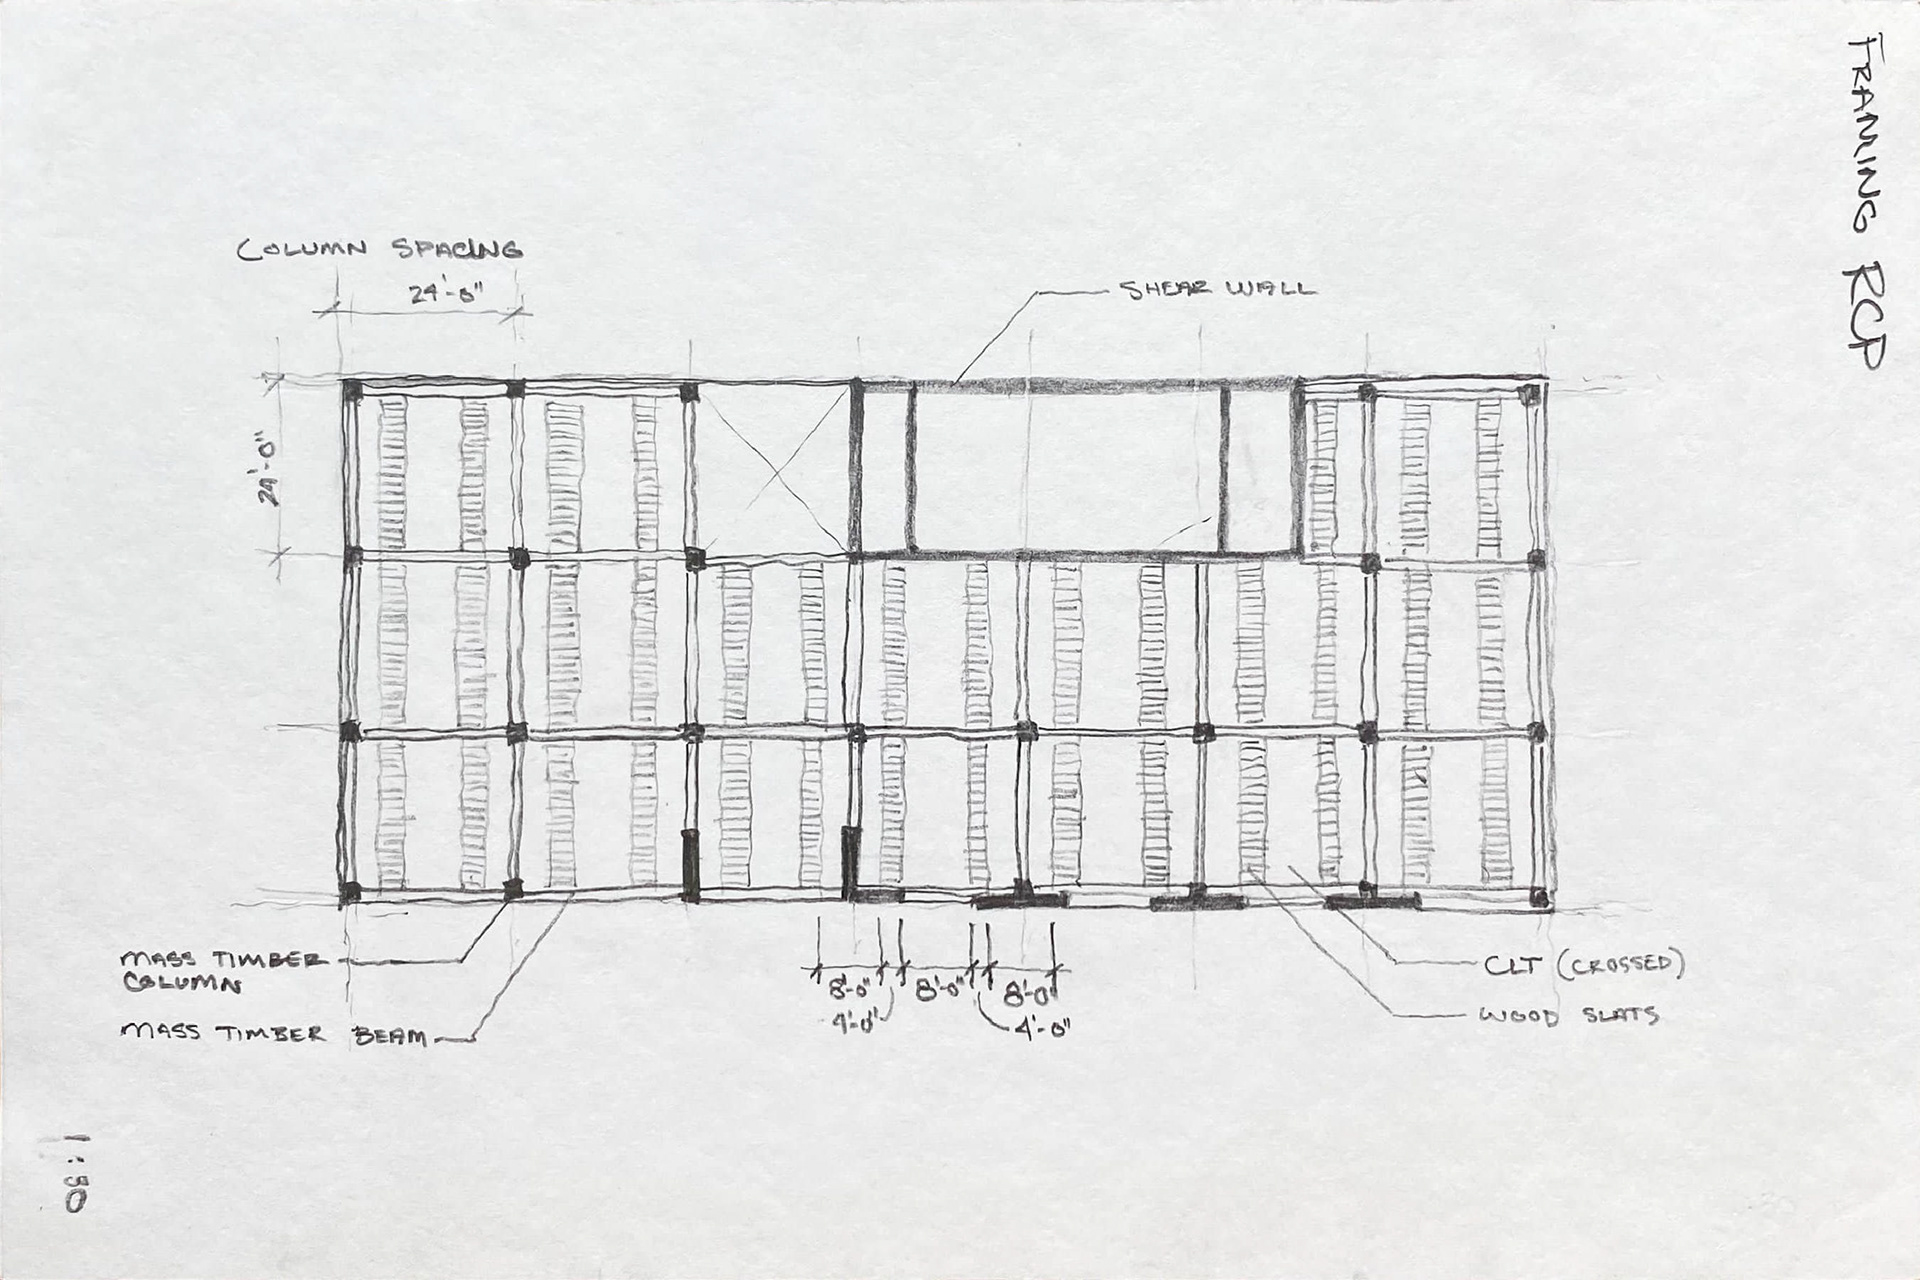 FRAMING RCP
COLUMN SPACING
24'-0"
SHEAR WALL
24'-0"
MASS TIMBER
COLUMN
MASS TIMBER BEAM
8'-0"
8'-0"
8'-0"
4'-0"
4'-0"
CLT (CROSSED)
WOOD SLATS
1:50